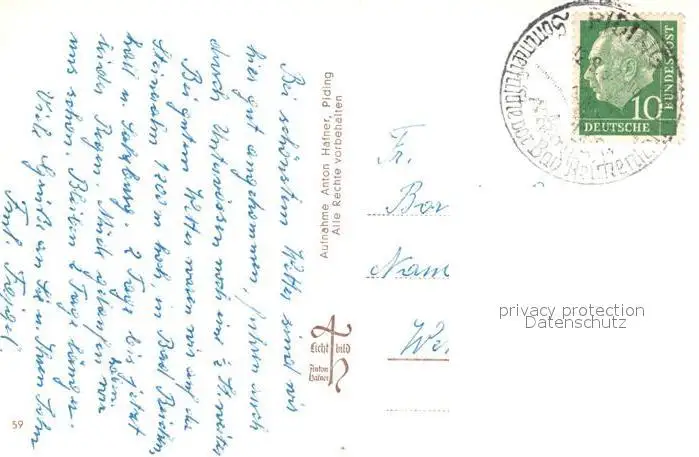 Bei schönstem Wetter sind wir
hier gut angekommen, fuhren auch
durch Unterwössen noch und
Bei gutem Wetter waren wir auf der
Steinalm 1200 m hoch, in Bad Reichen,
hall u. Salzburg. 2 Tage bis jetzt
Regen. Müde gelaufen
haben
uns schon. Bleiben 2 Tage länger.
Viele Grüße an Sie u. Ihren Sohn
Aufnahme Anton Hafner, Piding
Alle Rechte vorbehalten
Licht bild
Anton
Hafner
59
Fr.
Bor
Nam
We
PIDING
Sommerfrische vor Bad Reichenhall
10
DEUTSCHE
BUNDESPOST
privacy protection
Datenschutz